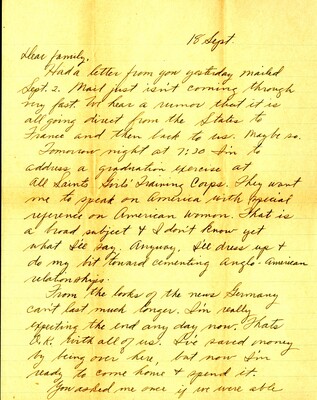 18 Sept.
Dear family,
Had a letter from you yesterday mailed
Sept. 2. Mail just isn't coming through
very fast. We hear a rumor that it is
all going direct from the States to
France and then back to us. Maybe so.
Tomorrow night at 7:30 I'm to
address a graduation exercise at
All Saints Girls' Training Corps. They want
me to speak on America with special
reference on American women. That is
a broad subject & I don't know yet
what I'll say. Anyway, I'll dress up &
do my bit toward cementing Anglo-American
relationships.
From the looks of the news Germany
can't last much longer. I'm really
expecting the end any day now. That's
O.K. with all of us. I've saved money
by being over here, but now I'm
ready to come home & spend it.
You asked me once if we were able